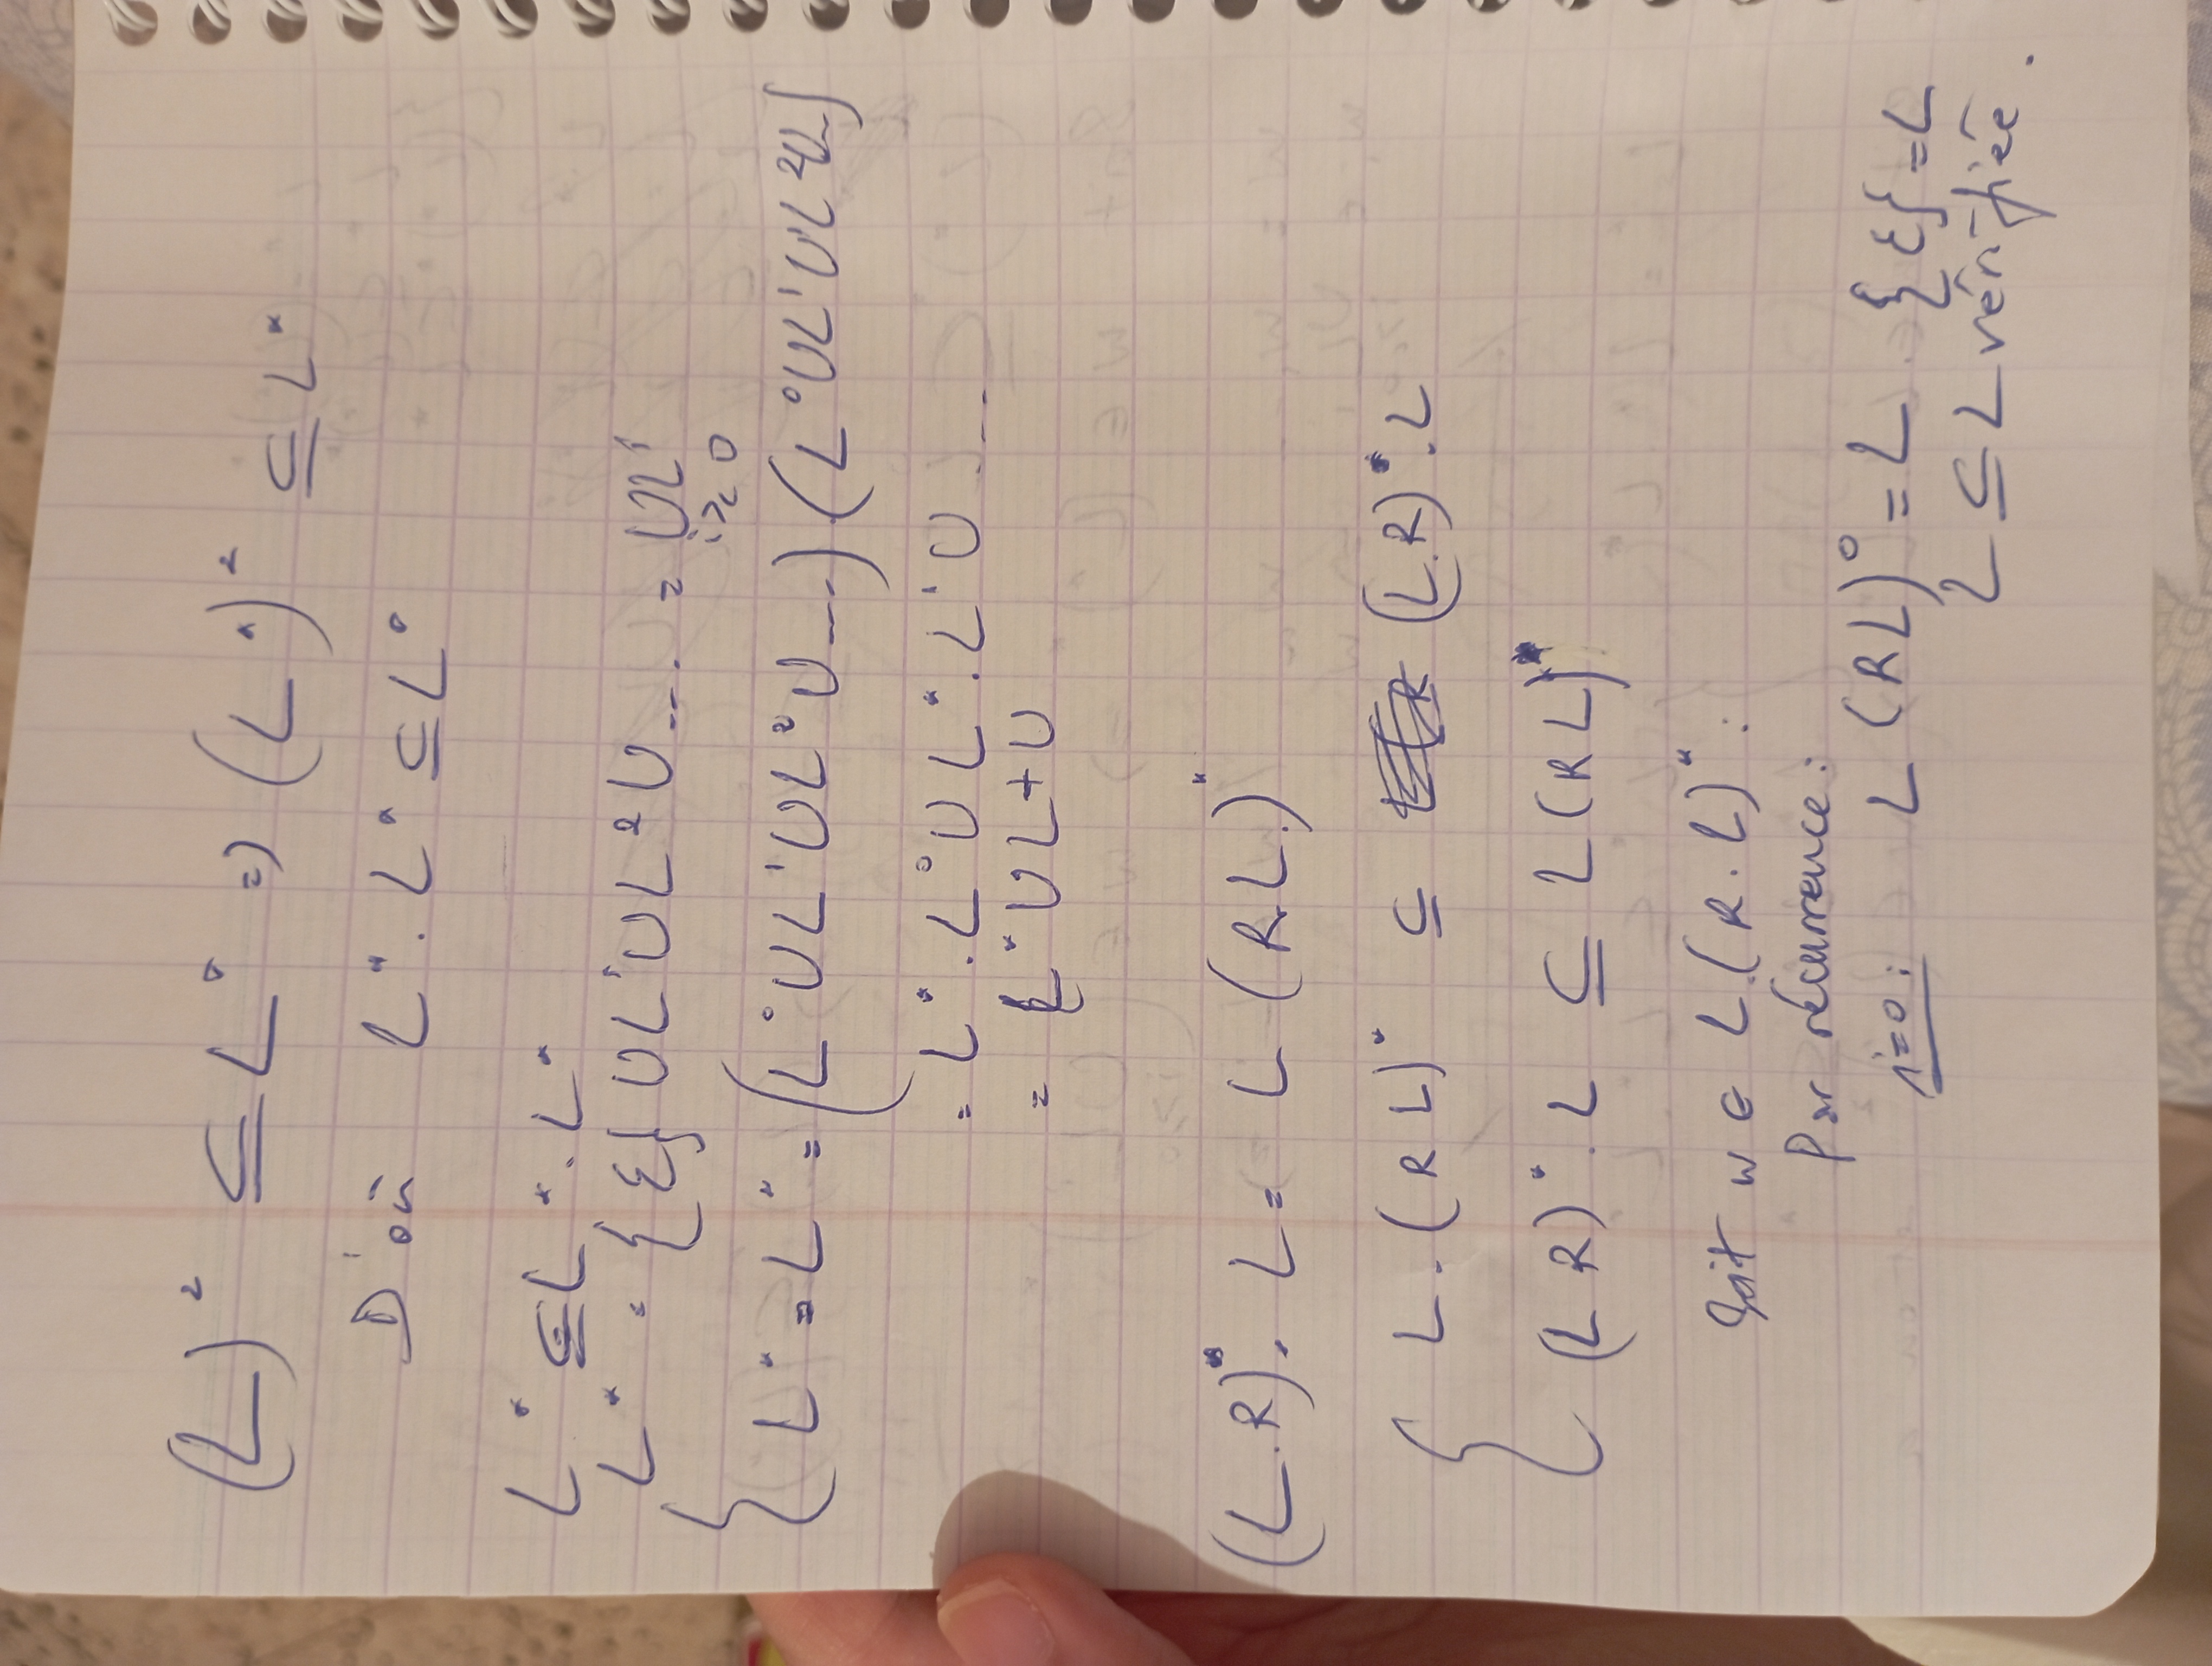 (L)² ⊆ L* ⇒ (L*)² ⊆ L*
D'où L*.L* ⊆ L*
L* ⊆ L*.L*
{ L* = {ε} ∪ L¹ ∪ L² ∪ ... = ∪Lⁱ
i≥0
L* = L* = (L⁰ ∪ L¹ ∪ L² ∪ ...) (L⁰ ∪ L¹ ∪ L² ∪ ...)
= L*.L⁰ ∪ L*.L¹ ∪ ...
= L* ∪ L+ ∪
(L.R)*. L = L (RL)*
{ L.(RL)* ⊆ (L.R)*.L
(LR)*.L ⊆ L(RL)*
Soit w ∈ L.(R.L)* :
Par récurrence :
i=0 : L (RL)⁰ = L . {ε} = L
L ⊆ L vérifiée .